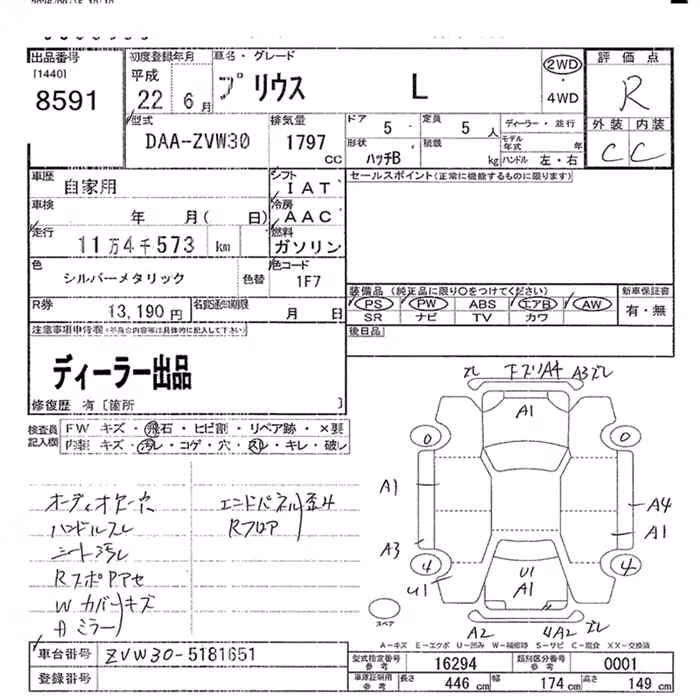 出品番号 初度登録年月 車名・グレード 評価点
[1440] 平成 2WD
8591 22 6月 プリウス L ・ R
4WD
型式 排気量 ドア 5 定員 5人 ディーラー・並行 外装 内装
DAA-ZVW30 1797 cc 形状 ハッチB 積載 kg モデル年式 年 C C
ハンドル 左・右
車歴 自家用 シフト IAT セールスポイント(正常に機能するものに限ります)
車検 年 月( 日) 冷房 AAC
走行 11万4千573 km 燃料 ガソリン
色 シルバーメタリック 色替 色コード 1F7
装備品(純正品に限り○をつけてください) 新車保証書
PS PW ABS エアB AW 有・無
SR ナビ TV カワ
R券 13,190円 名変通知期限 月 日
後日品
注意事項申告欄
ディーラー出品
修復歴 有〔箇所 〕
検査員記入欄 FW キズ・飛石・ヒビ割・リペア跡・×要
内装 キズ・汚レ・コゲ・穴・スレ・キレ・破レ
ズレ 下ズリA4 A3ズレ
A1
0 0
A1 A4
A1
A3
4 4
U1 U1
A1
スペア
A2 4A2 ズレ
ハンドルスレ Rフロア
シート汚レ
Wカバー キズ
ミラー
A-キズ E-エクボ U-凹み W-補修跡 S-サビ C-腐食 XX-交換済
車台番号 ZVW30-5181651
登録番号
型式指定番号 参考 16294 類別区分番号 参考 0001
車庫証明用 参考 長さ 446cm 幅 174cm 高さ 149cm